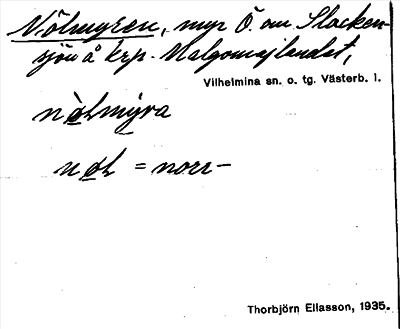 Nölmyren, myr Ö. om Slacken-
sjön å krp. Malgomajlandet,
Vilhelmina sn. o. tg. Västerb. l.
nø̀lmýra
nøl = norr-
Thorbjörn Eliasson, 1935.